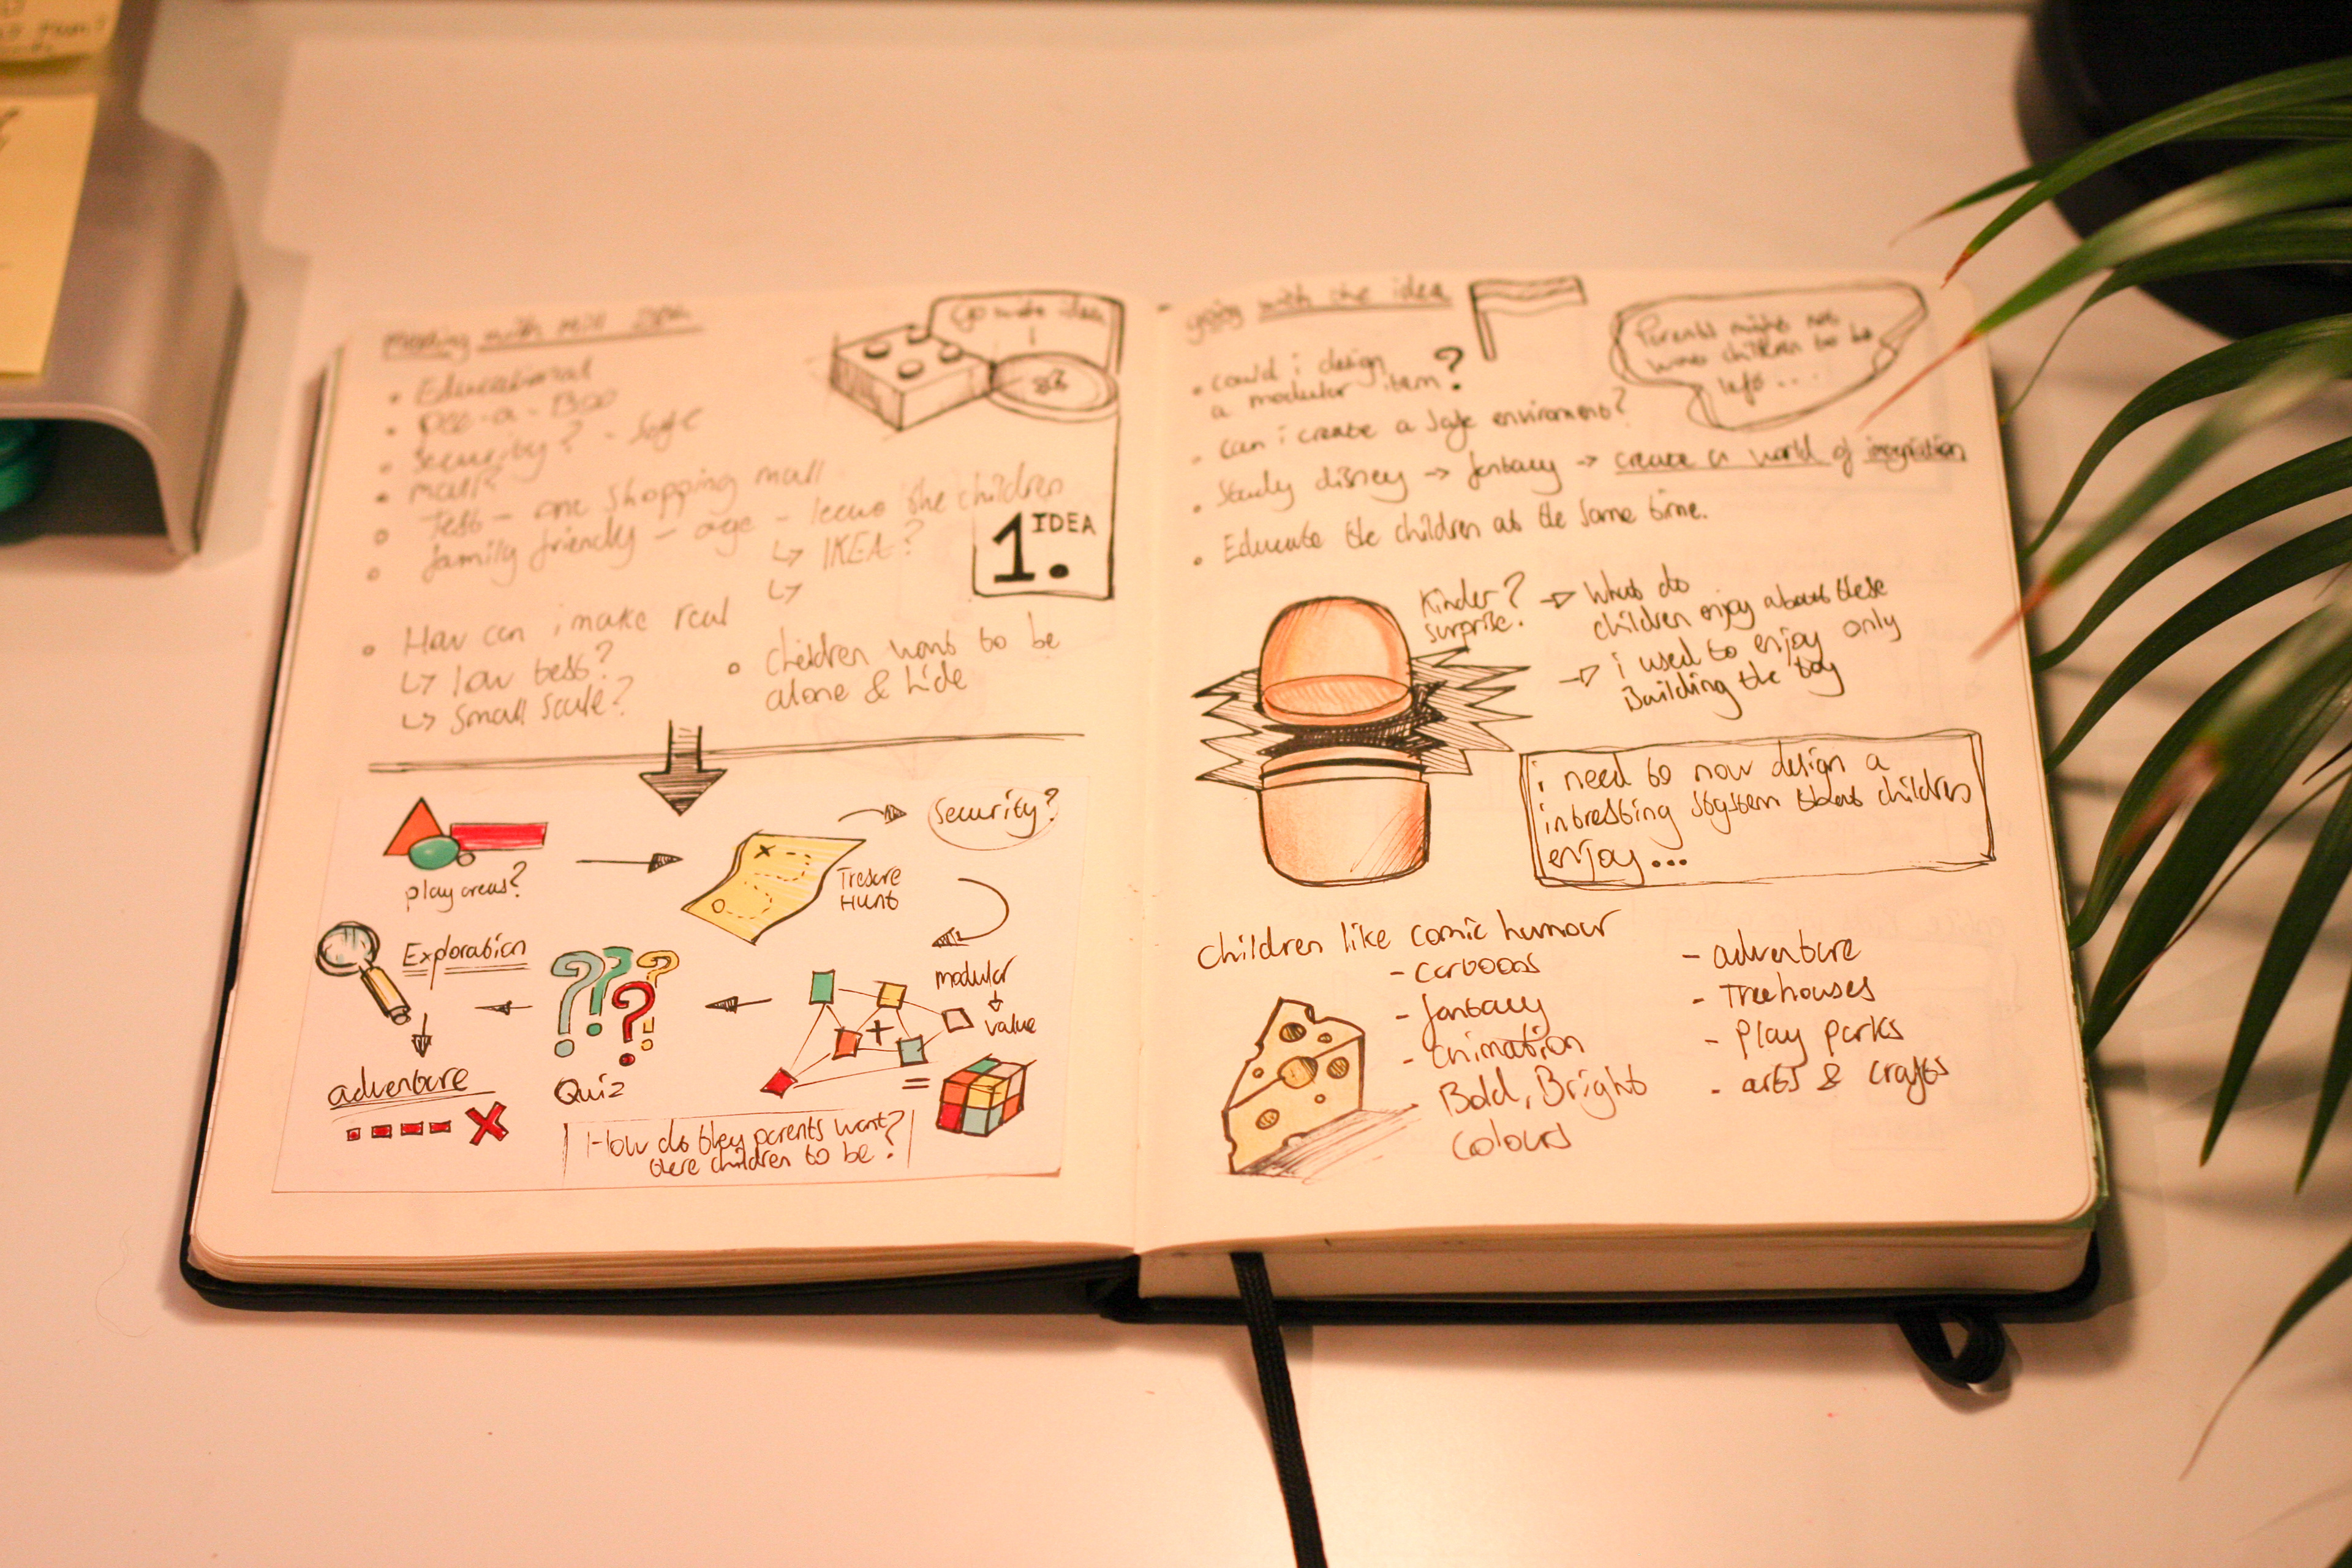 meeting with
• Educational
• Pee-a-Boo
• Security? - Safe
• mall?
• Test - one shopping mall
• family friendly - age - leave the children
↳ IKEA?
↳
Go with idea
1. IDEA
• How can i make real
↳ low test?
↳ Small Scale?
• children want to be
alone & hide
play areas?
Tresure
Hunt
Security?
modular
value
+
=
Quiz
Exploration
adventure
How do they parents want?
there children to be?
going with the idea
Parents might not
want children to be
left...
• could i design
a modular item?
• can i create a safe enviroment?
• Study disney → fantacy → create a world of
• Educate the children at the same time.
Kinder?
surprise.
→ What do
children enjoy about these
→ i used to enjoy only
Building the toy
i need to now design a
intresting system that children
enjoy...
children like comic humour
- cartoons
- fantacy
- animation
Bold, Bright
colours
- adventure
- Treehouses
- play parks
- arts & crafts